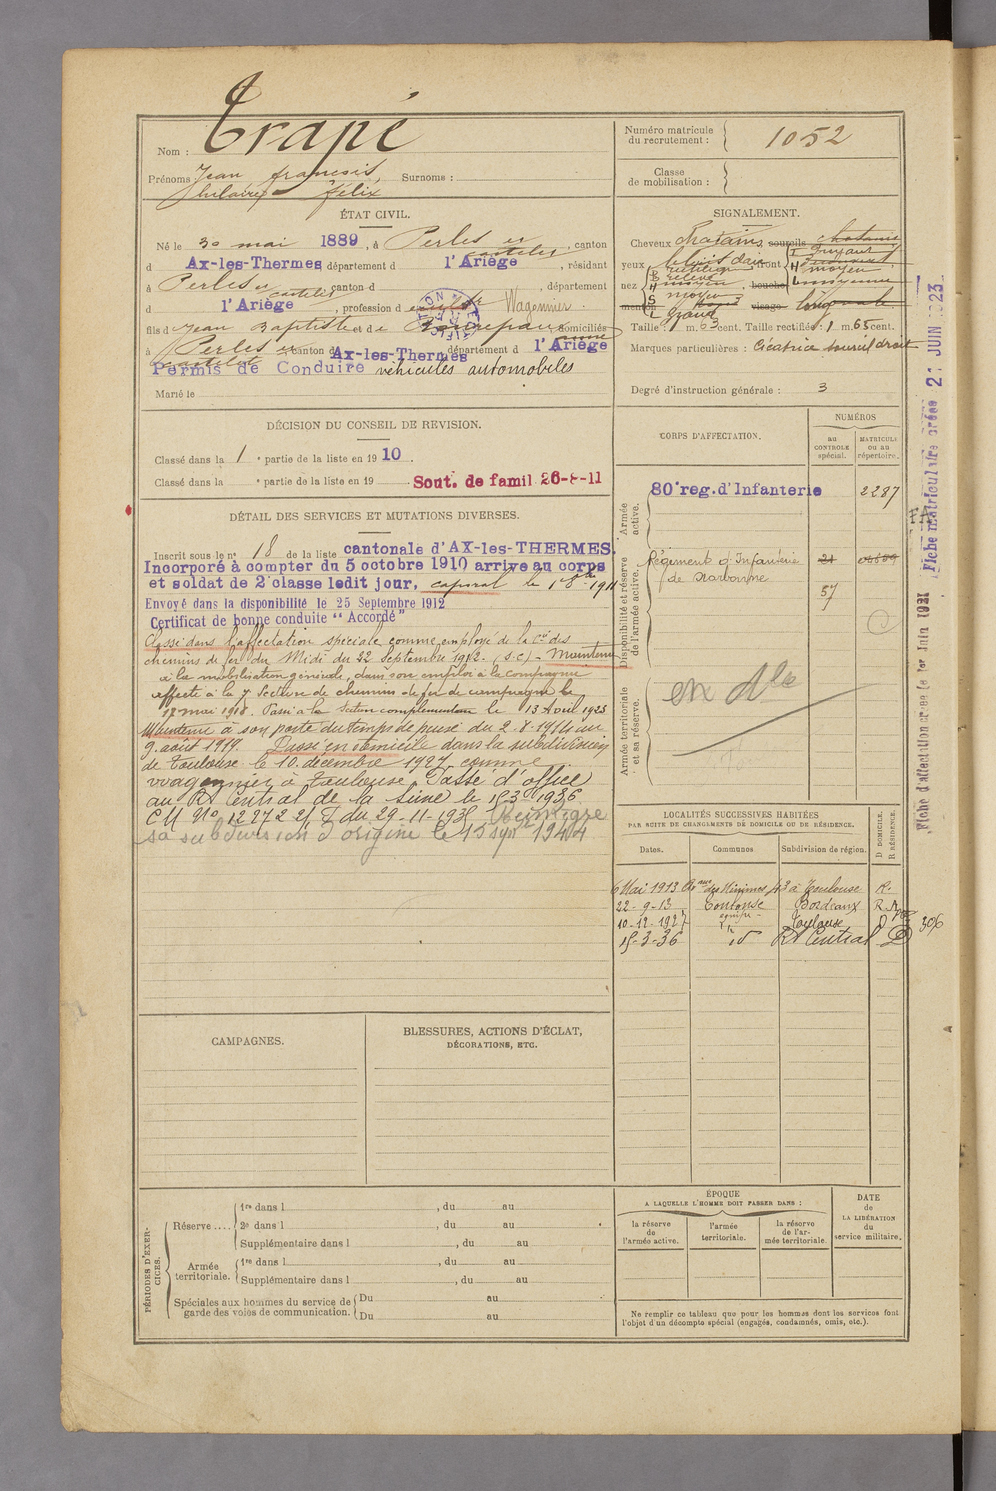 Trapé
Nom :
Prénoms : Jean François, Surnoms :
hilaire Félix
Numéro matricule
du recrutement : 1052
Classe
de mobilisation :
ÉTAT CIVIL.
Né le 30 mai 1889, à Perles et castelet, canton
d Ax-les-Thermes département d l'Ariège, résidant
à Perles et castelet canton d , département
d l'Ariège, profession d Wagonnier
fils d Jean Baptiste et d domiciliés
à Perles et castelet canton d Ax-les-Thermes département d l'Ariège
Permis de Conduire véhicules automobiles
Marié le
SIGNALEMENT.
Cheveux chatains sourcils chatains
yeux front
nez moyen, bouche moyenne
menton visage
Taille : 1 m. 63 cent. Taille rectifiée : 1 m. 65 cent.
Marques particulières : Cicatrice sourcil droit
Degré d'instruction générale : 3
DÉCISION DU CONSEIL DE REVISION.
Classé dans la 1 e partie de la liste en 1910.
Classé dans la e partie de la liste en 19 Sout. de famil 26-8-11
DÉTAIL DES SERVICES ET MUTATIONS DIVERSES.
Inscrit sous le n° 18 de la liste cantonale d'AX-les-THERMES.
Incorporé à compter du 5 octobre 1910 arrive au corps
et soldat de 2e classe ledit jour, caporal le 1er 1911
Envoyé dans la disponibilité le 25 Septembre 1912
Certificat de bonne conduite "Accordé"
Classé dans l'affectation spéciale comme employé de la Cie des
chemins de fer du Midi du 22 Septembre 1912 - (S.C.) - Maintenu
à la mobilisation générale, dans son emploi à la compagnie
affecté à la 7 Section de chemins de fer de campagne le
17 mai 1918. Passé à la Section complémentaire le 13 Avril 1923
Maintenu à son poste du temps de paix du 2-8-1914 au
9 août 1919. Passé en domicile dans la subdivision
de Toulouse le 10 décembre 1927 comme
wagonnier à Toulouse. Passé d'office
au RS Central de la Seine le 15-3-1936
CM No 12272 du 29-11-1935 Réintègre
sa subdivision d'origine le 15 sept 1944
CORPS D'AFFECTATION.
NUMÉROS
au
CONTROLE
spécial.
MATRICULE
ou au
répertoire.
Armée
active.
80e reg. d'Infanterie 2287
Disponibilité et réserve
de l'armée active.
Régiment d'Infanterie
de Narbonne
57
Armée territoriale
et sa réserve.
Fiche d'affectation créée le 1er Juin 1931
Fiche matriculaire créée 21 JUIN 1923
LOCALITÉS SUCCESSIVES HABITÉES
PAR SUITE DE CHANGEMENTS DE DOMICILE OU DE RÉSIDENCE.
Dates. Communes Subdivision de région. D DOMICILE. R RÉSIDENCE.
6 Mai 1913 des Minimes 43 à Toulouse R.
22-9-13 Toulouse Bordeaux R.
10-12-1927 Toulouse D
15-3-36 id RS Central D
306
CAMPAGNES.
BLESSURES, ACTIONS D'ÉCLAT,
DÉCORATIONS, ETC.
PÉRIODES D'EXERCICES.
Réserve ....
1re dans l , du au
2e dans l , du au
Supplémentaire dans l , du au
Armée
territoriale.
1re dans l , du au
Supplémentaire dans l , du au
Spéciales aux hommes du service de
garde des voies de communication.
Du au
Du au
ÉPOQUE
A LAQUELLE L'HOMME DOIT PASSER DANS :
la réserve
de
l'armée active.
l'armée
territoriale.
la réserve
de l'ar-
mée territoriale.
DATE
de
LA LIBÉRATION
du
service militaire.
Ne remplir ce tableau que pour les hommes dont les services font
l'objet d'un décompte spécial (engagés, condamnés, omis, etc.).